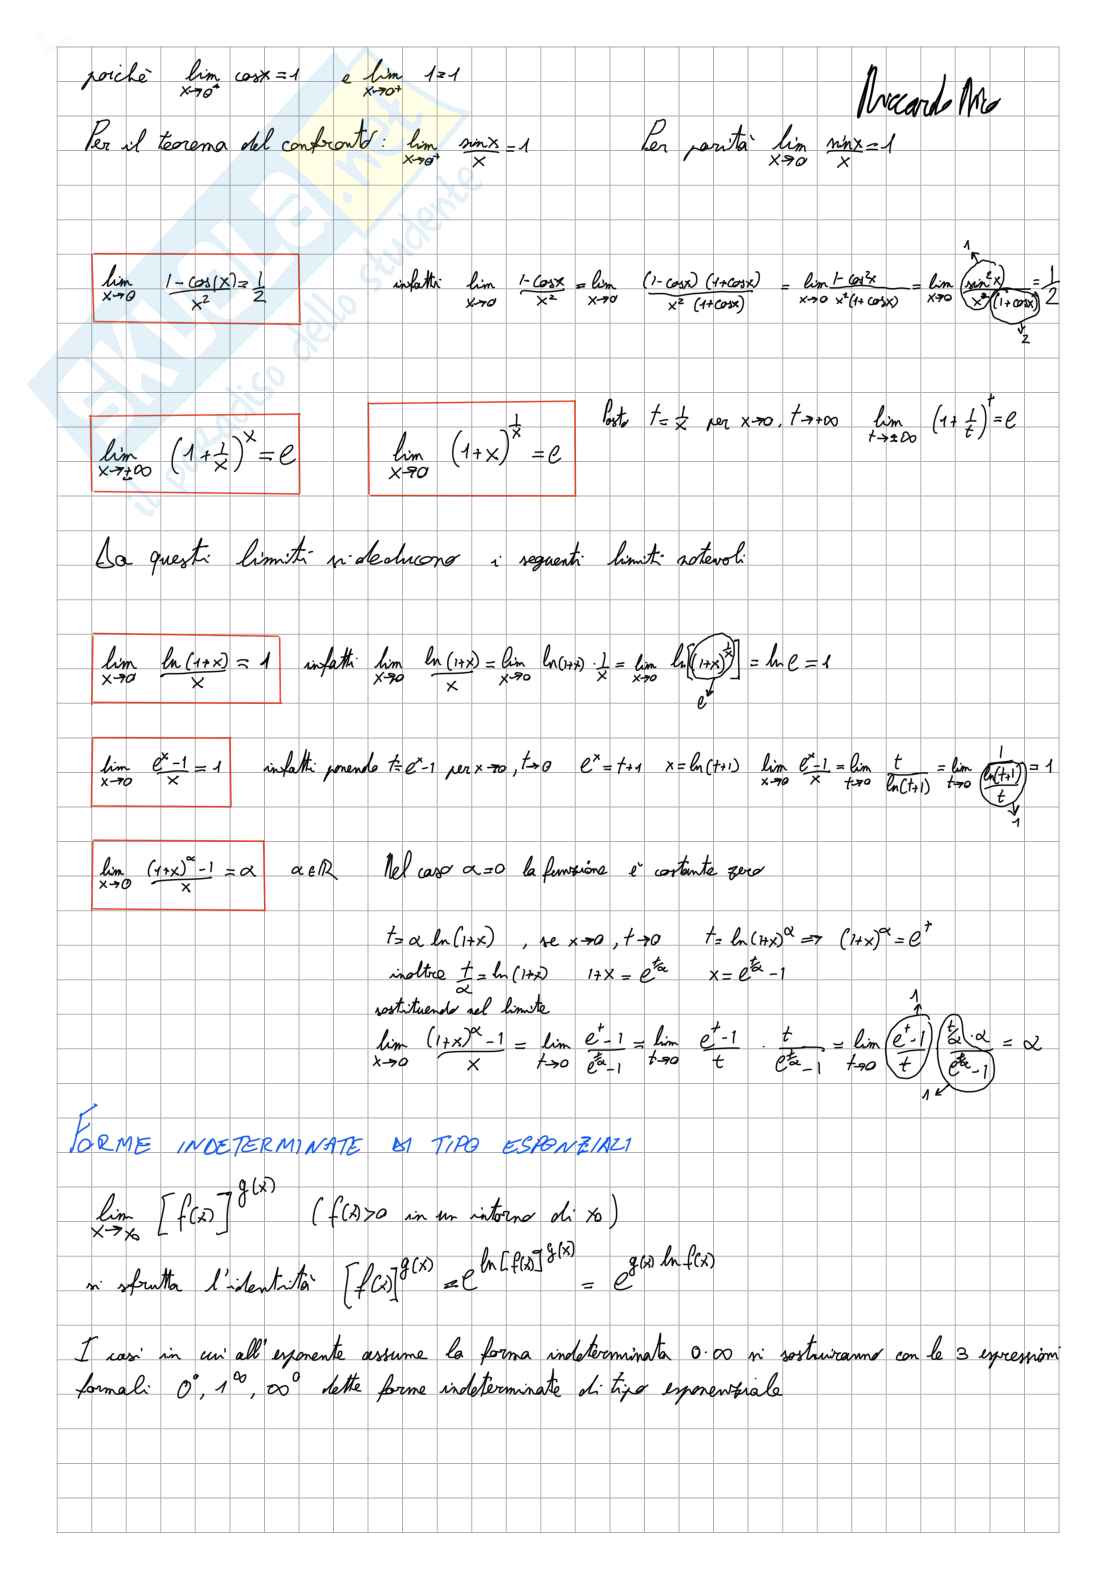 poiché lim x→0⁺ cosx = 1 e lim x→0⁺ 1=1
Riccardo
Per il teorema del confronto: lim x→0⁺ sinx/x = 1 Per parità lim x→0 sinx/x = 1
SKUOLA.net
il paradiso dello studente
lim x→0 1-cos(x)/x² = 1/2 infatti lim x→0 1-cosx/x² = lim x→0 (1-cosx)(1+cosx)/x²(1+cosx) = lim x→0 1-cos²x/x²(1+cosx) = lim x→0 sin²x/x²(1+cosx) = 1/2
1
2
lim x→±∞ (1+1/x)^x = e lim x→0 (1+x)^(1/x) = e Posto t=1/x per x→0, t→+∞ lim t→±∞ (1+1/t)^t = e
Da questi limiti si deducono i seguenti limiti notevoli
lim x→0 ln(1+x)/x = 1 infatti lim x→0 ln(1+x)/x = lim x→0 ln(1+x)·1/x = lim x→0 ln[(1+x)^(1/x)] = ln e = 1
e
lim x→0 e^x-1/x = 1 infatti ponendo t=e^x-1 per x→0, t→0 e^x=t+1 x=ln(t+1) lim x→0 e^x-1/x = lim t→0 t/ln(t+1) = lim t→0 1/(ln(t+1)/t) = 1
1
lim x→0 (1+x)^α-1/x = α α∈ℝ Nel caso α=0 la funzione è costante zero
t=α ln(1+x) , se x→0, t→0 t=ln(1+x)^α ⇒ (1+x)^α = e^t
inoltre t/α = ln(1+x) 1+x = e^(t/α) x = e^(t/α)-1
sostituendo nel limite
lim x→0 (1+x)^α-1/x = lim t→0 e^t-1/e^(t/α)-1 = lim t→0 e^t-1/t · t/e^(t/α)-1 = lim t→0 e^t-1/t (t/α·α/e^(t/α)-1) = α
1
1
FORME INDETERMINATE DI TIPO ESPONZIALI
lim x→x₀ [f(x)]^g(x) (f(x)>0 in un intorno di x₀)
si sfrutta l'identità [f(x)]^g(x) = e^(ln[f(x)]^g(x)) = e^(g(x) ln f(x))
I casi in cui all'esponente assume la forma indeterminata 0·∞ si sostruiranno con le 3 espressioni
formali 0⁰, 1^∞, ∞⁰ dette forme indeterminate di tipo esponenziale